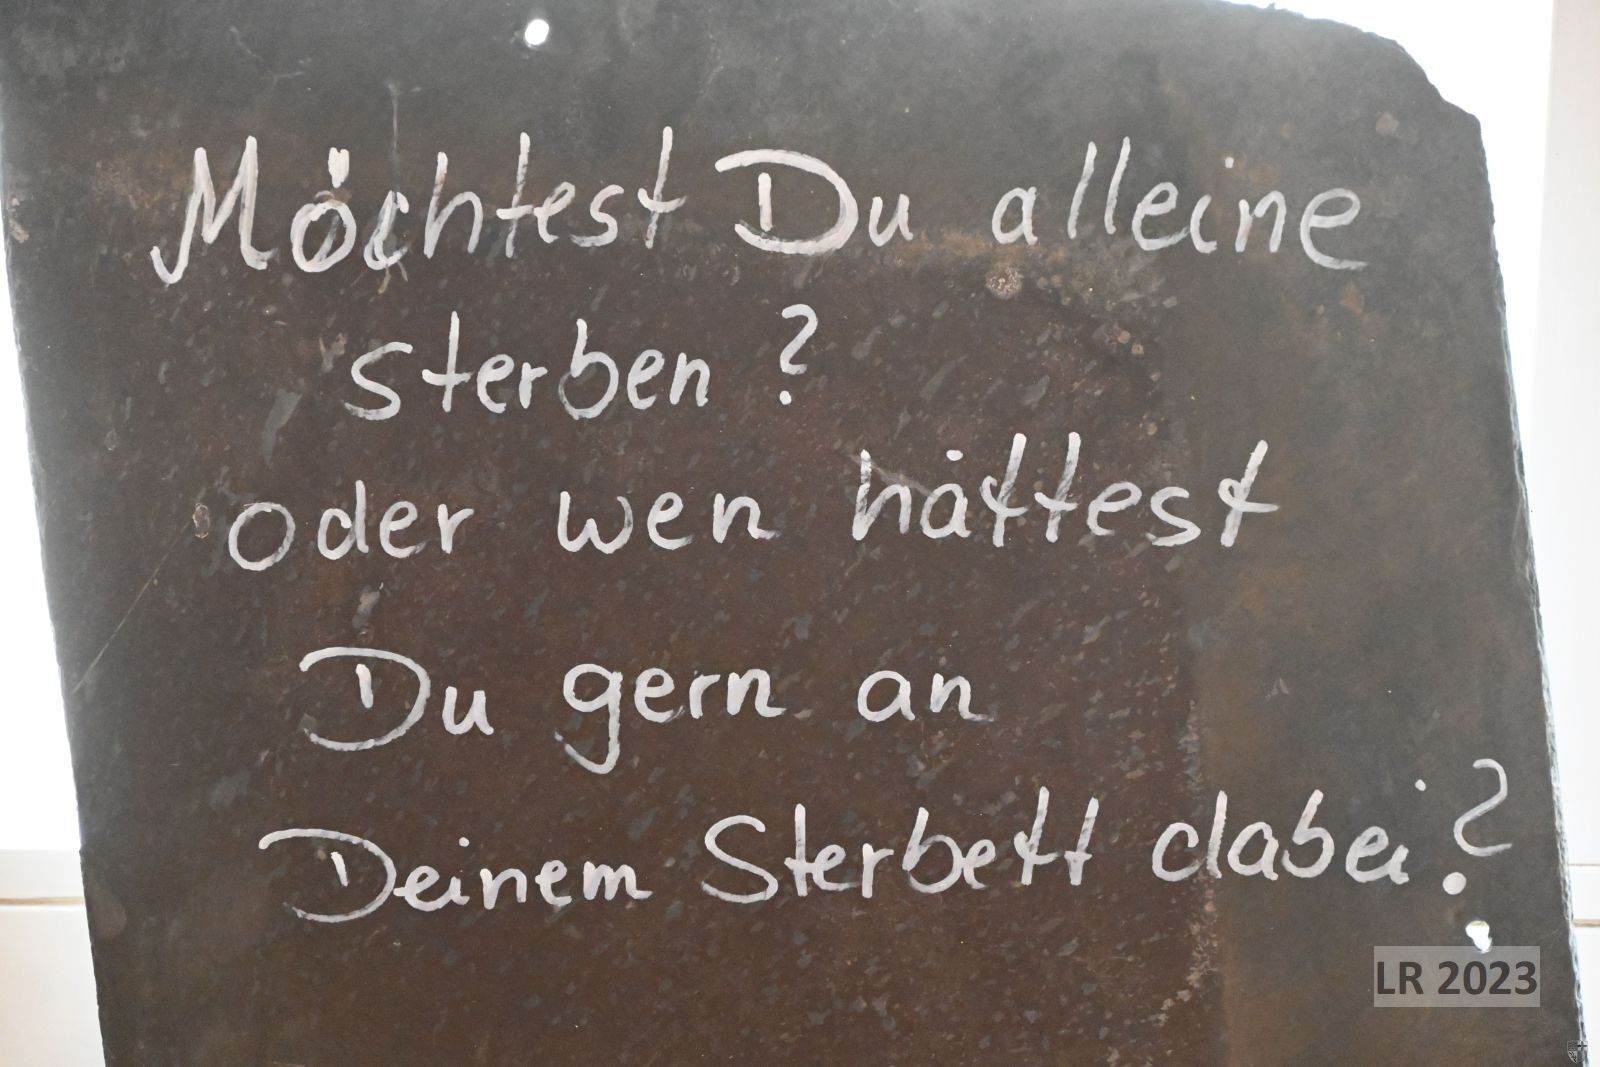 Möchtest Du alleine
sterben?
oder wen hättest
Du gern an
Deinem Sterbett dabei?
LR 2023